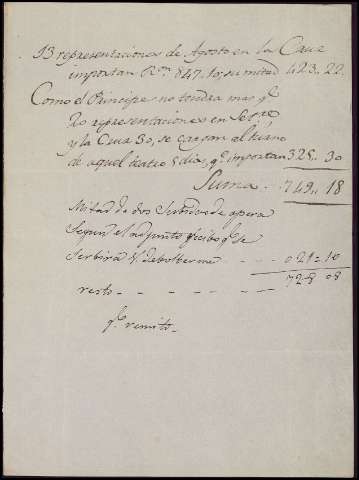 13 representaciones de Agosto en la Cruz
importan Rs.vn 847..10, su mitad 423.. 22.
Como el Principe no tendra mas q.e
20 representaciones en Sepre
y la Cruz 30, se cargan al
de aquel teatro 5 dias, q.e importan 325.. 30
Suma . 749.. 18
Mitad de dos Subidas de opera
segun el adjunto recibo q.e se
serbira V. debolberme - - - - 021 = 10
resto - - - - 728 08
q.e remito -